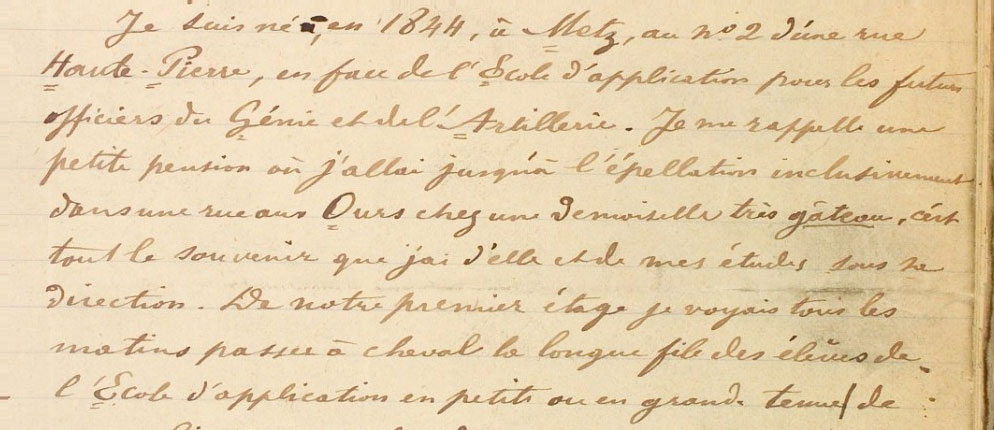 Je suis né, en 1844, à Metz, au nº 2 d'une rue
Haute-Pierre, en face de l'École d'application pour les futurs
officiers du Génie et de l'Artillerie. Je me rappelle une
petite pension où j'allai jusqu'à l'épellation inclusivement
dans une rue aux Ours chez une demoiselle très gâteau, c'est
tout le souvenir que j'ai d'elle et de mes études sous sa
direction. De notre premier étage je voyais tous les
matins passer à cheval la longue file des élèves de
l'École d'application en petite ou en grande tenue / de